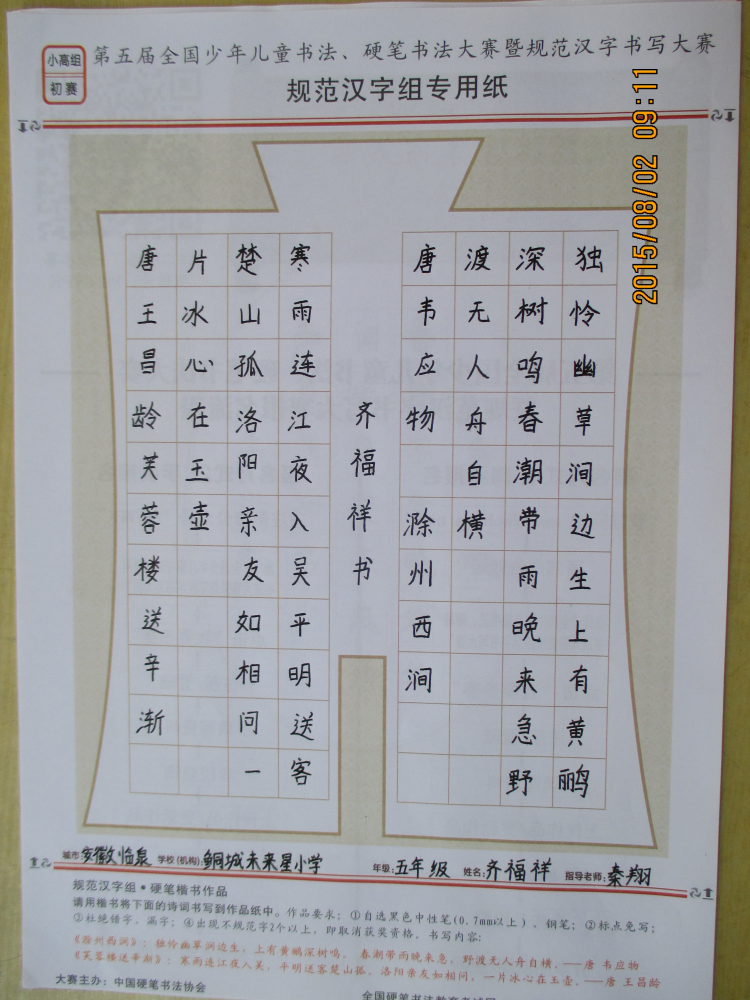 小高组
初赛
第五届全国少年儿童书法、硬笔书法大赛暨规范汉字书写大赛
规范汉字组专用纸
2015/08/02 09:11
独怜幽草涧边生上有黄鹂
深树鸣春潮带雨晚来急野
渡无人舟自横
唐韦应物 滁州西涧
齐福祥书
寒雨连江夜入吴平明送客
楚山孤洛阳亲友如相问一
片冰心在玉壶
唐王昌龄芙蓉楼送辛渐
城市:安徽临泉 学校(机构):鲖城未来星小学 年级:五年级 姓名:齐福祥 指导老师:秦翔
规范汉字组·硬笔楷书作品
请用楷书将下面的诗词书写到作品纸中。作品要求:①自选黑色中性笔(0.7mm以上)、钢笔;②标点免写;
③杜绝错字、漏字;④出现不规范字2个以上,即取消获奖资格。书写内容:
《滁州西涧》:独怜幽草涧边生,上有黄鹂深树鸣。春潮带雨晚来急,野渡无人舟自横。——唐 韦应物
《芙蓉楼送辛渐》:寒雨连江夜入吴,平明送客楚山孤。洛阳亲友如相问,一片冰心在玉壶。——唐 王昌龄
大赛主办:中国硬笔书法协会